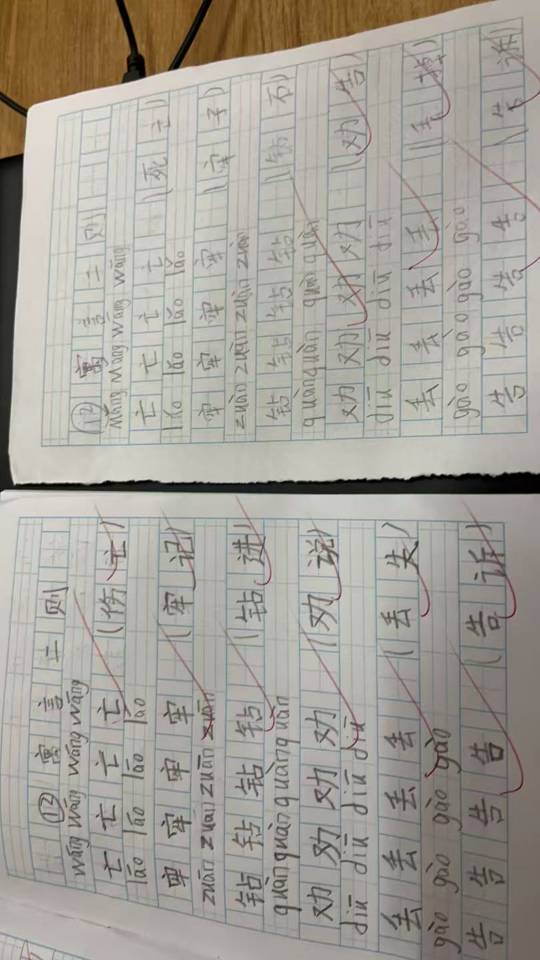 ⑫ 寓言二则
wáng wáng wáng wáng
亡 亡 亡 亡 (死亡)
láo láo láo láo
牢 牢 牢 牢 (牢子)
zuàn zuàn zuàn zuàn
钻 钻 钻 钻 (钻石)
quàn quàn quàn quàn
劝 劝 劝 劝 (劝告)
diū diū diū diū
丢 丢 丢 丢 (丢掉)
gào gào gào gào
告 告 告 告 (告诉)
⑫ 寓言二则
wáng wáng wáng wáng
亡 亡 亡 亡 (伤亡)
láo láo láo láo
牢 牢 牢 牢 (牢记)
zuān zuān zuān zuān
钻 钻 钻 钻 (钻进)
quàn quàn quàn quàn
劝 劝 劝 劝 (劝说)
diū diū diū diū
丢 丢 丢 丢 (丢失)
gào gào gào gào
告 告 告 告 (告诉)